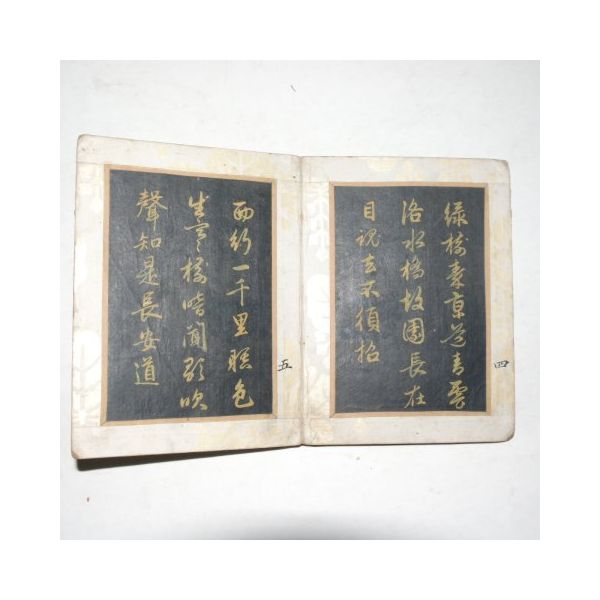 四
綠樹秦京道青雲
洛水橋故園長在
目魂去不須招
五
西行一千里暝色
生寒樹暗聞歌吹
聲知是長安道